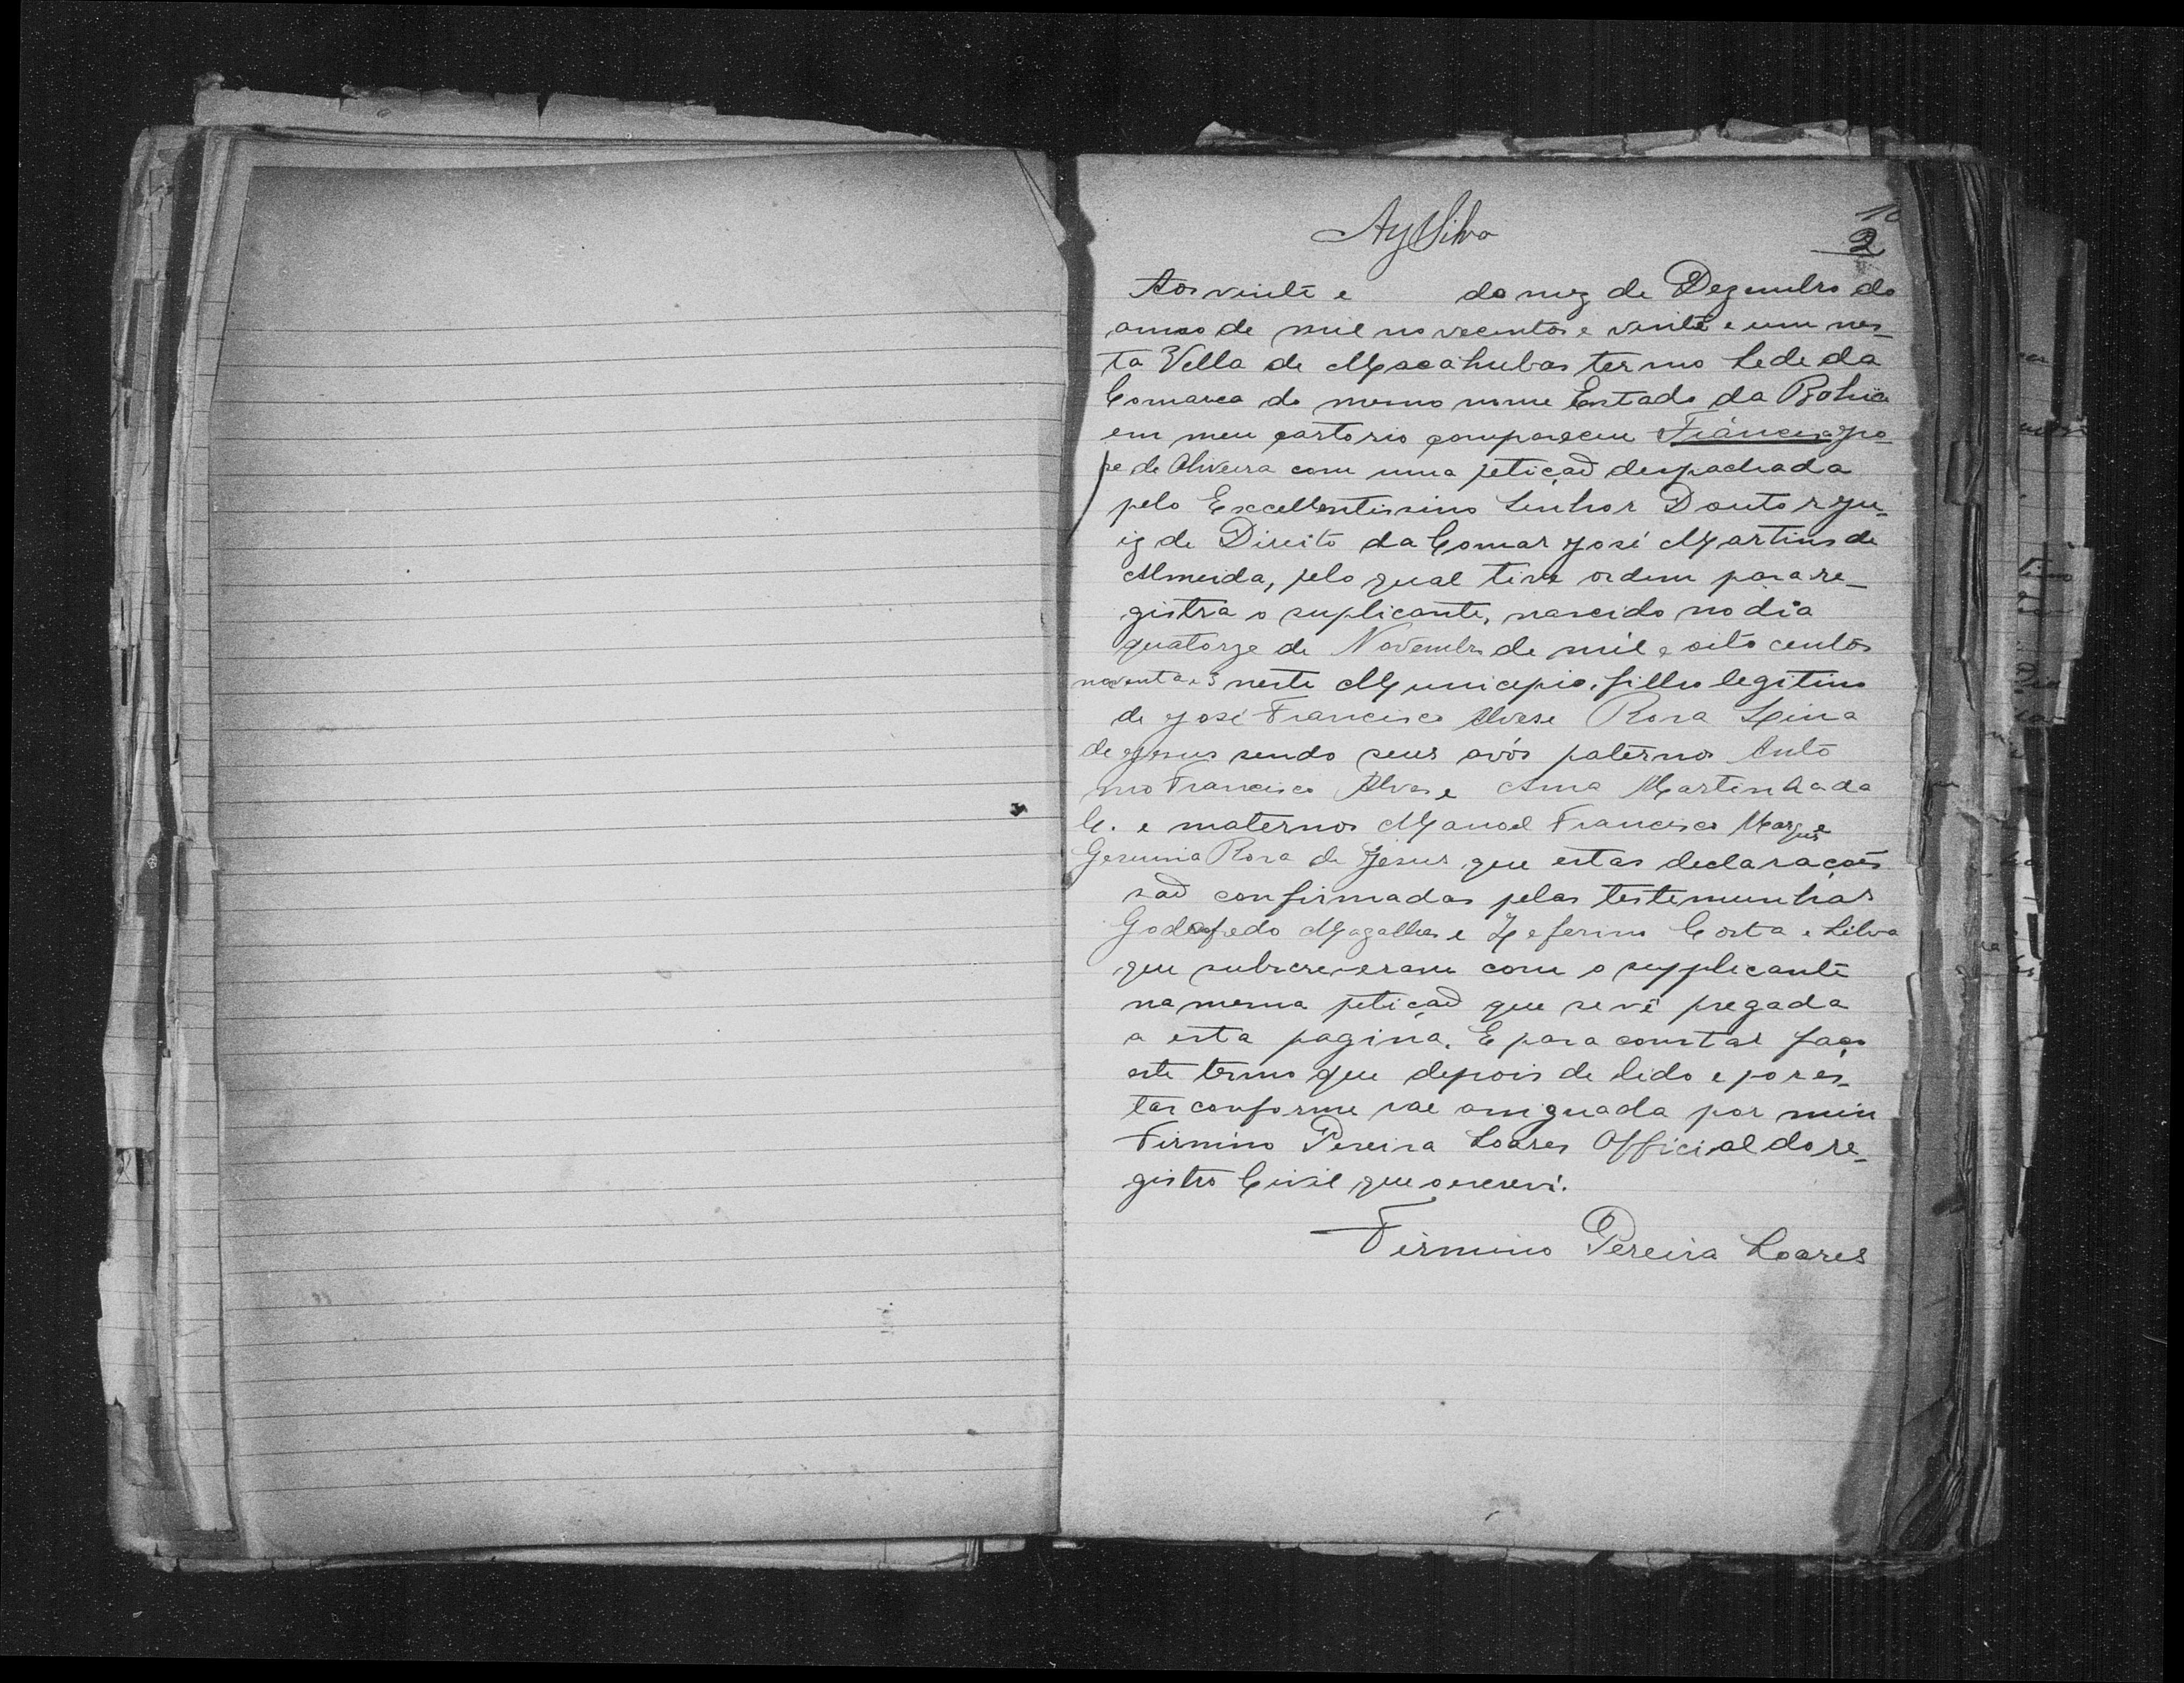 AySilva
10
2
Aos vinte e do mez de Dezembro do
anno de mil novecentos e vinte e um nes-
ta Villa de Macahubas termo Sede da
Comarca do mesmo nome Estado da Bahia
em meu cartorio compareceu Francisco Jo-
se de Oliveira com uma petição despachada
pelo Excellentissimo Senhor Doutor Ju-
iz de Direito da Comar José Martins de
Almeida, pelo qual tive ordem para re-
gistra o suplicante, nascido no dia
quatorze de Novembro de mil e oito centos
noventa e 3 neste Municipio, filho legitimo
de José Francisco Alves e Rosa Lina
de Jesus sendo seus avós paternos Anto
nio Francisco Alves e Anna Martinha da
C. e maternos Manoel Francisco Marques
Gesuina Rosa de Jesus, que estas declarações
são confirmadas pelas testemunhas
Godofredo Magalhes e Zeferino Costa e Silva
que subscreveram com o supplicante
na mesma petição que se vê pregada
a esta pagina. E para constar faço
este termo que depois de lido e por es-
tar conforme vae assignada por mim
Firmino Pereira Soares Official do re-
gistro Civil que o escrevi.
Firmino Pereira Soares